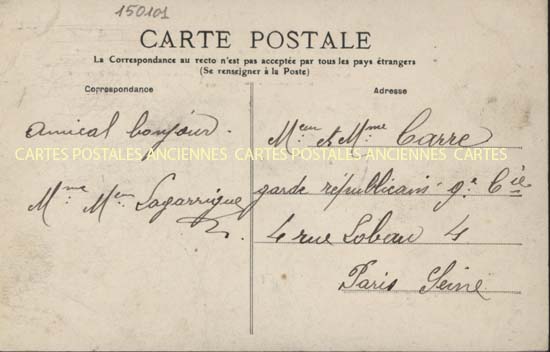 150101
CARTE POSTALE
La Correspondance au recto n'est pas acceptée par tous les pays étrangers
(Se renseigner à la Poste)
Correspondance
Adresse
amical bonjour.
Mme Meur Lagarrigue
Meur et Mme Carre
garde républicain 9e Cie
4 rue Lobau 4
Paris Seine
CARTES POSTALES ANCIENNES CARTES POSTALES ANCIENNES CARTES